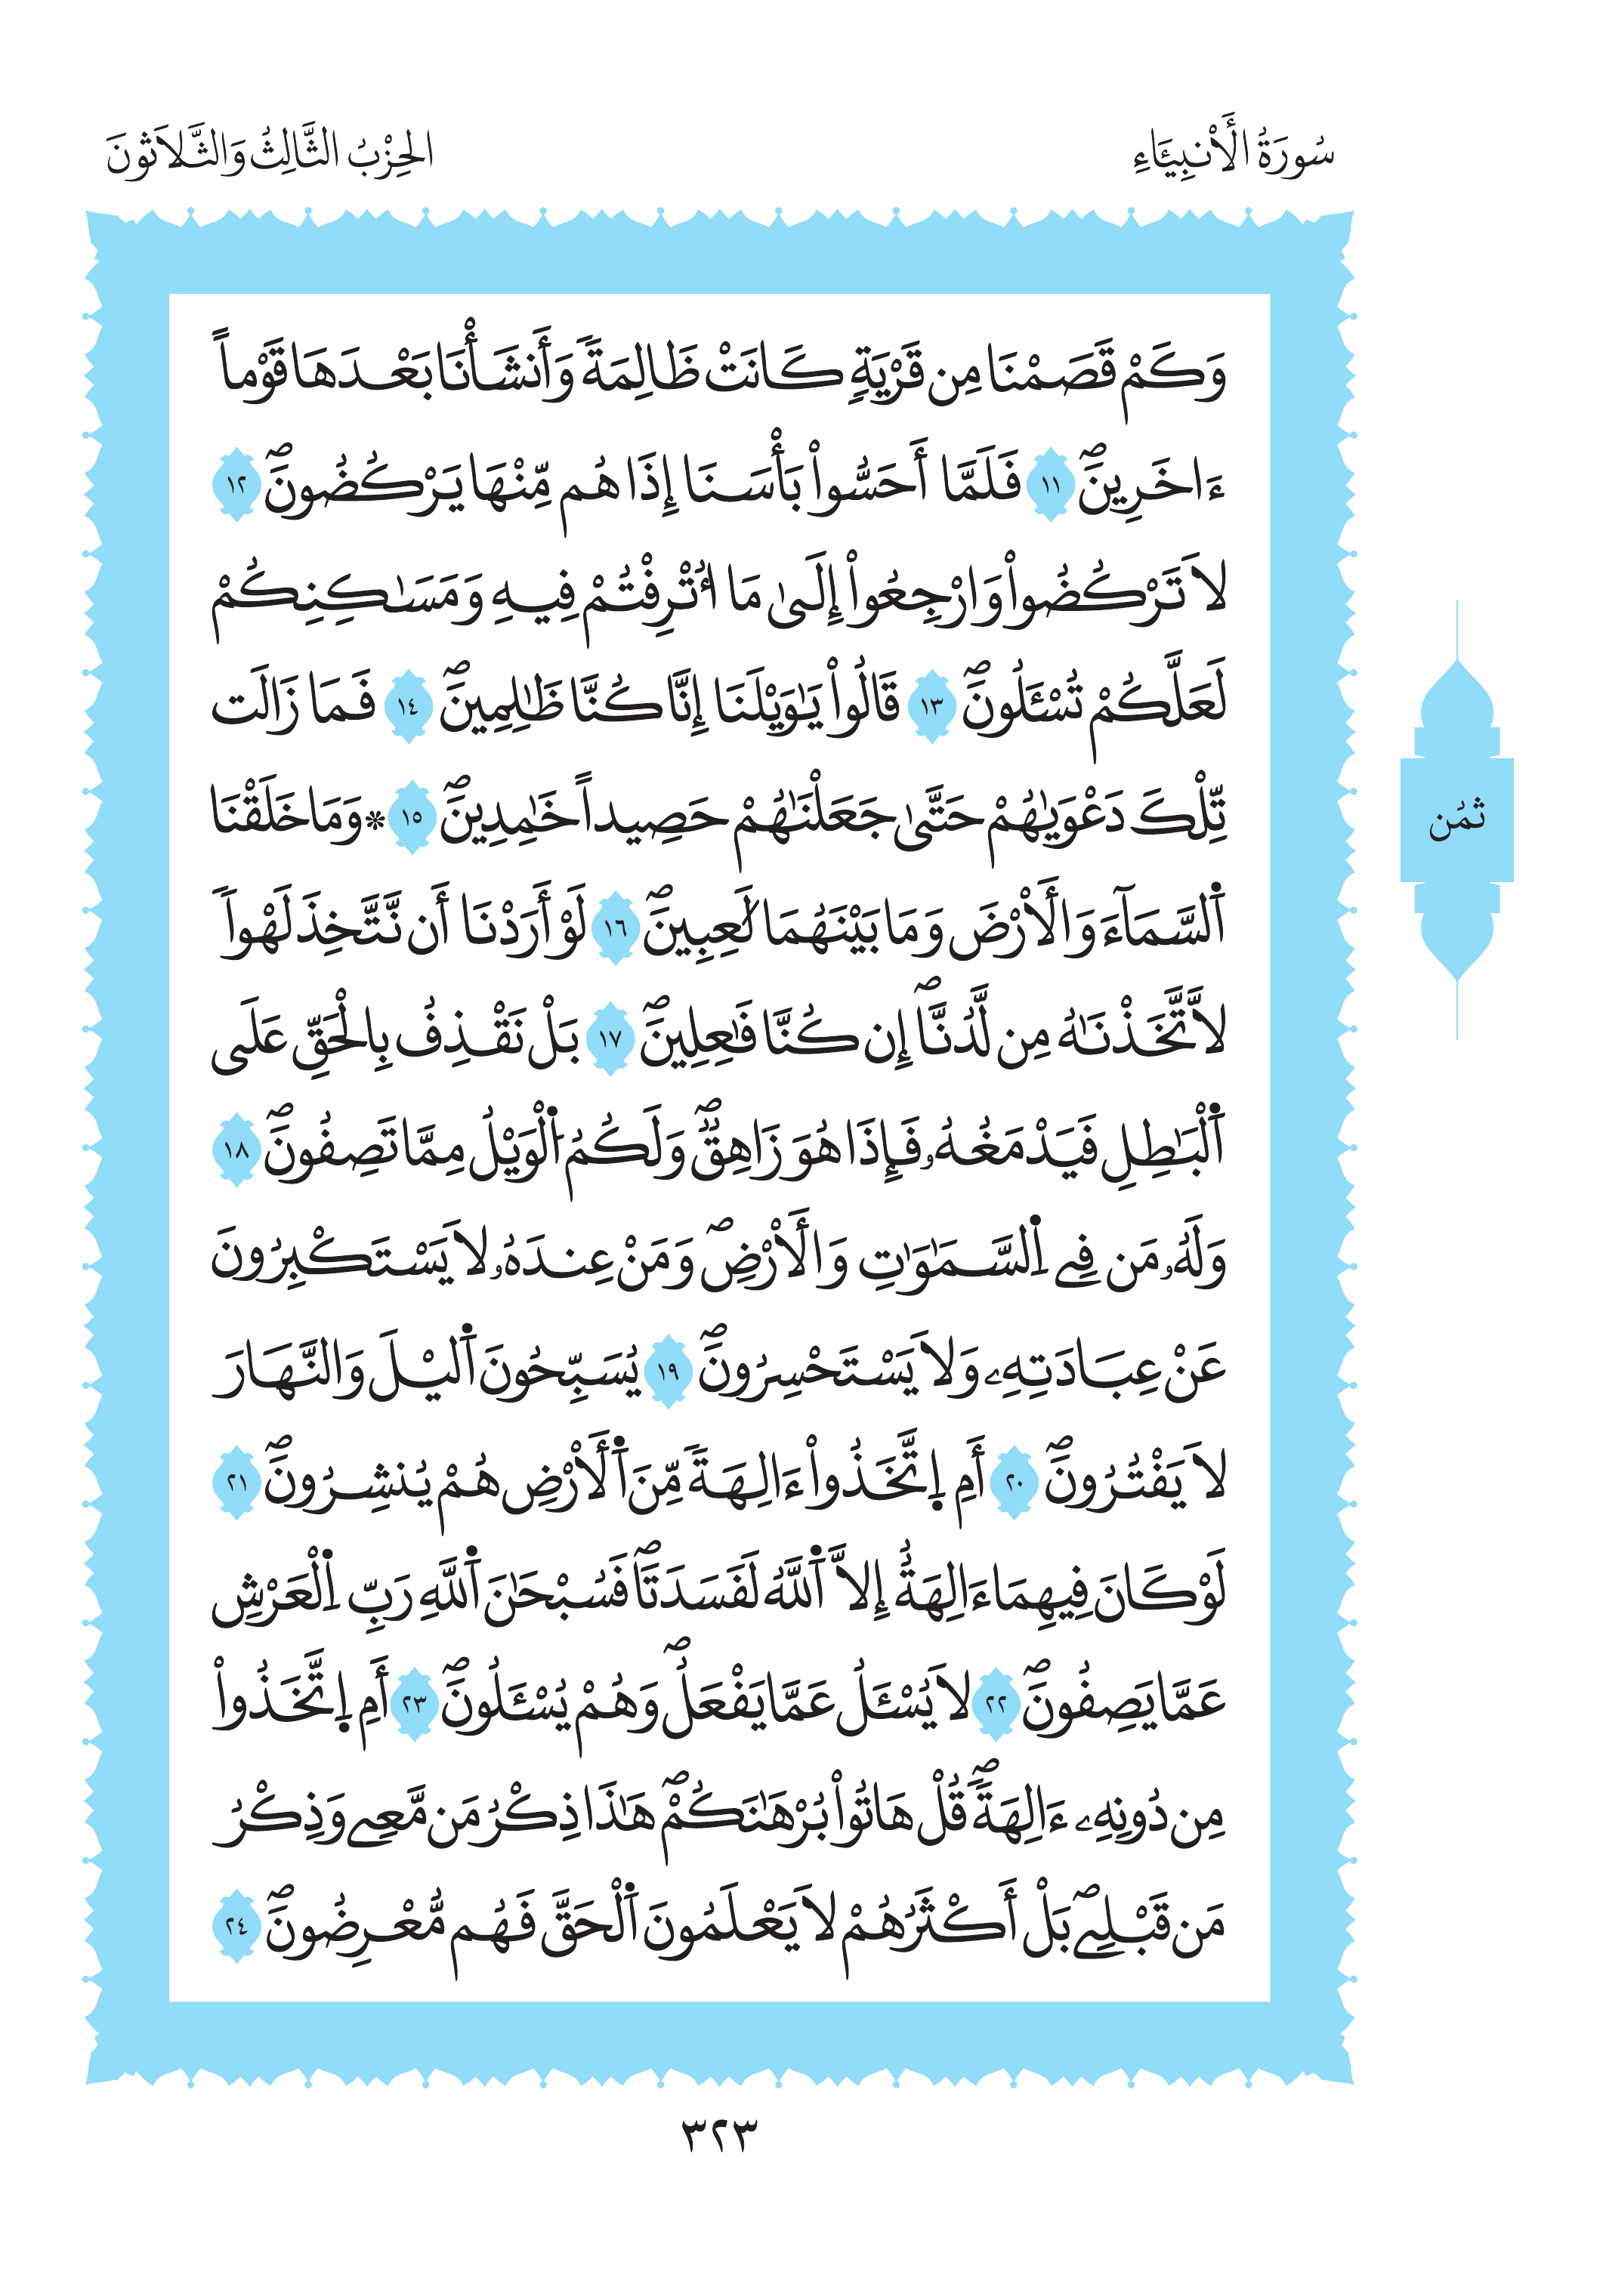 سُورَةُ الْأَنْبِيَاءِ
الحِزْبُ الثَّالِثُ وَالثَّلَاثُونَ
وَكَمْ قَصَمْنَا مِن قَرْيَةٍ كَانَتْ ظَالِمَةً وَأَنشَأْنَا بَعْدَهَا قَوْماً
ءَاخَرِينَۖ ١١ فَلَمَّا أَحَسُّواْ بَأْسَنَا إِذَا هُم مِّنْهَا يَرْكُضُونَۖ ١٢
لَا تَرْكُضُواْ وَارْجِعُواْ إِلَىٰ مَا أُتْرِفْتُمْ فِيهِ وَمَسَٰكِنِكُمْ
لَعَلَّكُمْ تُسْـَٔلُونَۖ ١٣ قَالُواْ يَٰوَيْلَنَا إِنَّا كُنَّا ظَٰلِمِينَۖ ١٤ فَمَا زَالَت
تِّلْكَ دَعْوَيٰهُمْ حَتَّىٰ جَعَلْنَٰهُمْ حَصِيداً خَٰمِدِينَۖ ١٥ * وَمَا خَلَقْنَا
اَ۬لسَّمَآءَ وَالْأَرْضَ وَمَا بَيْنَهُمَا لَٰعِبِينَۖ ١٦ لَوْ أَرَدْنَا أَن نَّتَّخِذَ لَهْواً
لَّاتَّخَذْنَٰهُ مِن لَّدُنَّاۖ إِن كُنَّا فَٰعِلِينَۖ ١٧ بَلْ نَقْذِفُ بِالْحَقِّ عَلَى
اَ۬لْبَٰطِلِ فَيَدْمَغُهُۥ فَإِذَا هُوَ زَاهِقٌۖ وَلَكُمُ اُ۬لْوَيْلُ مِمَّا تَصِفُونَۖ ١٨
وَلَهُۥ مَن فِے اِ۬لسَّمَٰوَٰتِ وَالْأَرْضِۖ وَمَنْ عِندَهُۥ لَا يَسْتَكْبِرُونَ
عَنْ عِبَادَتِهِۦ وَلَا يَسْتَحْسِرُونَۖ ١٩ يُسَبِّحُونَ اَ۬ليْلَ وَالنَّهَارَ
لَا يَفْتُرُونَۖ ٢٠ أَمِ اِ۪تَّخَذُواْ ءَالِهَةً مِّنَ اَ۬لْأَرْضِ هُمْ يُنشِرُونَۖ ٢١
لَوْ كَانَ فِيهِمَا ءَالِهَةٌ إِلَّا اَ۬للَّهُ لَفَسَدَتَاۖ فَسُبْحَٰنَ اَ۬للَّهِ رَبِّ اِ۬لْعَرْشِ
عَمَّا يَصِفُونَۖ ٢٢ لَا يُسْـَٔلُ عَمَّا يَفْعَلُۖ وَهُمْ يُسْـَٔلُونَۖ ٢٣ أَمِ اِ۪تَّخَذُواْ
مِن دُونِهِۦ ءَالِهَةًۖ قُلْ هَاتُواْ بُرْهَٰنَكُمْۖ هَٰذَا ذِكْرُ مَن مَّعِے وَذِكْرُ
مَن قَبْلِےۖ بَلْ أَكْثَرُهُمْ لَا يَعْلَمُونَ اَ۬لْحَقَّ فَهُم مُّعْرِضُونَۖ ٢٤
ثمُن
٣٢٣